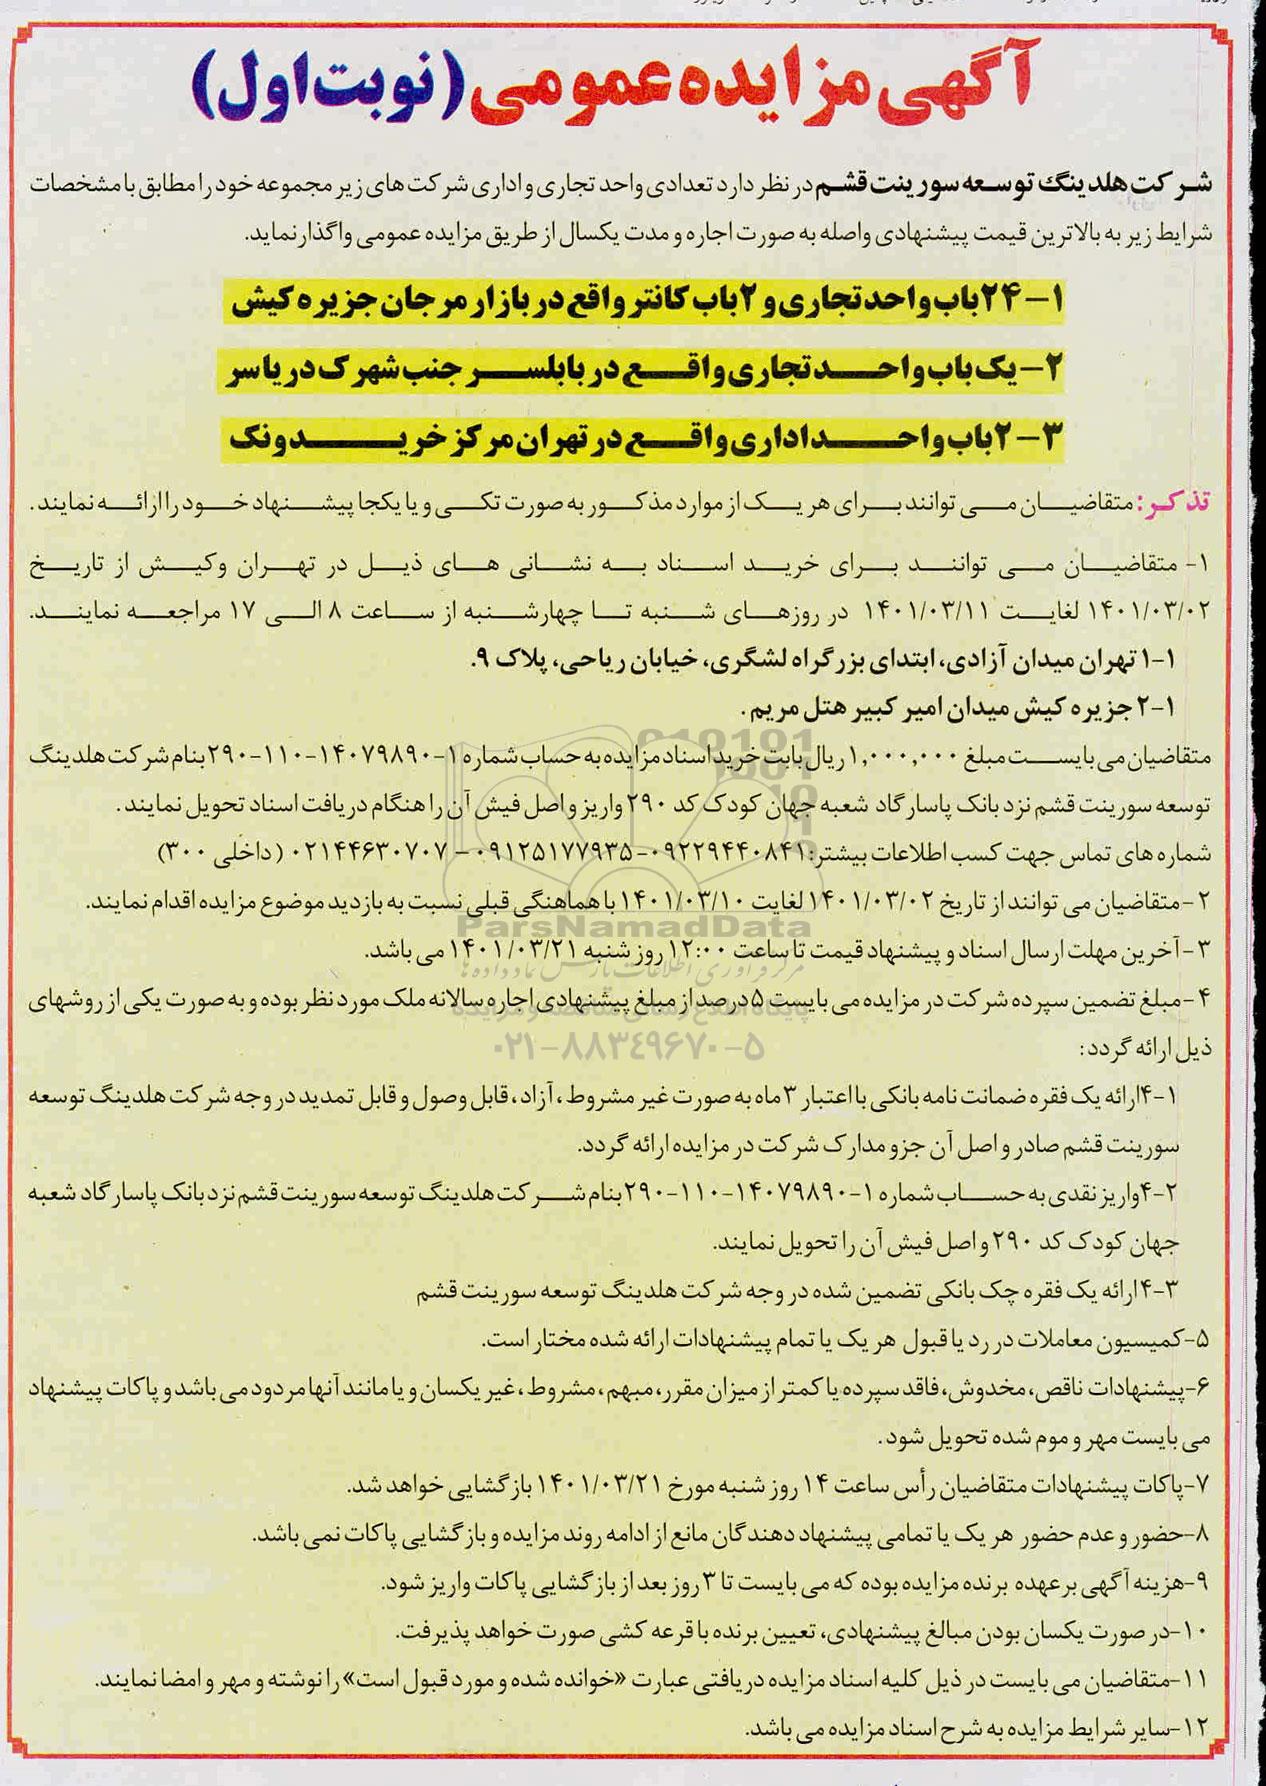 آگهی مزایده عمومی (نوبت اول)
شرکت هلدینگ توسعه سورینت قشم در نظر دارد تعدادی واحد تجاری و اداری شرکت های زیر مجموعه خود را مطابق با مشخصات
شرایط زیر به بالاترین قیمت پیشنهادی واصله به صورت اجاره و مدت یکسال از طریق مزایده عمومی واگذار نماید.
۱- ۲۴ باب واحد تجاری و ۲ باب کانتر واقع در بازار مرجان جزیره کیش
۲- یک باب واحد تجاری واقع در بابلسر جنب شهرک دریاسر
۳- ۲ باب واحد اداری واقع در تهران مرکز خرید ونک
تذکر: متقاضیان می توانند برای هر یک از موارد مذکور به صورت تکی و یا یکجا پیشنهاد خود را ارائه نمایند.
۱- متقاضیان می توانند برای خرید اسناد به نشانی های ذیل در تهران وکیش از تاریخ
۱۴۰۱/۰۳/۰۲ لغایت ۱۴۰۱/۰۳/۱۱ در روزهای شنبه تا چهارشنبه از ساعت ۸ الی ۱۷ مراجعه نمایند.
۱-۱ تهران میدان آزادی، ابتدای بزرگراه لشگری، خیابان ریاحی، پلاک ۹.
۲-۱ جزیره کیش میدان امیر کبیر هتل مریم.
متقاضیان می بایست مبلغ ۱,۰۰۰,۰۰۰ ریال بابت خرید اسناد مزایده به حساب شماره ۱-۱۴۰۷۹۸۹۰-۱۱۰-۲۹۰ بنام شرکت هلدینگ
توسعه سورینت قشم نزد بانک پاسارگاد شعبه جهان کودک کد ۲۹۰ واریز و اصل فیش آن را هنگام دریافت اسناد تحویل نمایند.
شماره های تماس جهت کسب اطلاعات بیشتر: ۰۹۲۲۹۴۴۰۸۴۱-۰۹۱۲۵۱۷۷۹۳۵ – ۰۲۱۴۴۶۳۰۷۰۷ (داخلی ۳۰۰)
۲- متقاضیان می توانند از تاریخ ۱۴۰۱/۰۳/۰۲ لغایت ۱۴۰۱/۰۳/۱۰ با هماهنگی قبلی نسبت به بازدید موضوع مزایده اقدام نمایند.
ParsNamadData
۳- آخرین مهلت ارسال اسناد و پیشنهاد قیمت تا ساعت ۱۲:۰۰ روز شنبه ۱۴۰۱/۰۳/۲۱ می باشد.
مرکز فرآوری اطلاعات پارس نماد داده ها
۴- مبلغ تضمین سپرده شرکت در مزایده می بایست ۵ درصد از مبلغ پیشنهادی اجاره سالانه ملک مورد نظر بوده و به صورت یکی از روشهای
پایگاه اطلاع رسانی مناقصه و مزایده
ذیل ارائه گردد:
۰۲۱-۸۸۳۴۹۶۷۰-۵
۴-۱ ارائه یک فقره ضمانت نامه بانکی با اعتبار ۳ ماه به صورت غیر مشروط، آزاد، قابل وصول و قابل تمدید در وجه شرکت هلدینگ توسعه
سورینت قشم صادر و اصل آن جزو مدارک شرکت در مزایده ارائه گردد.
۴-۲ واریز نقدی به حساب شماره ۱-۱۴۰۷۹۸۹۰-۱۱۰-۲۹۰ بنام شرکت هلدینگ توسعه سورینت قشم نزد بانک پاسارگاد شعبه
جهان کودک کد ۲۹۰ و اصل فیش آن را تحویل نمایند.
۴-۳ ارائه یک فقره چک بانکی تضمین شده در وجه شرکت هلدینگ توسعه سورینت قشم
۵- کمیسیون معاملات در رد یا قبول هر یک یا تمام پیشنهادات ارائه شده مختار است.
۶- پیشنهادات ناقص، مخدوش، فاقد سپرده یا کمتر از میزان مقرر، مبهم، مشروط، غیر یکسان و یا مانند آنها مردود می باشد و پاکات پیشنهاد
می بایست مهر و موم شده تحویل شود.
۷- پاکات پیشنهادات متقاضیان رأس ساعت ۱۴ روز شنبه مورخ ۱۴۰۱/۰۳/۲۱ بازگشایی خواهد شد.
۸- حضور و عدم حضور هر یک یا تمامی پیشنهاد دهندگان مانع از ادامه روند مزایده و بازگشایی پاکات نمی باشد.
۹- هزینه آگهی بر عهده برنده مزایده بوده که می بایست تا ۳ روز بعد از بازگشایی پاکات واریز شود.
۱۰- در صورت یکسان بودن مبالغ پیشنهادی، تعیین برنده با قرعه کشی صورت خواهد پذیرفت.
۱۱- متقاضیان می بایست در ذیل کلیه اسناد مزایده دریافتی عبارت «خوانده شده و مورد قبول است» را نوشته و مهر و امضا نمایند.
۱۲- سایر شرایط مزایده به شرح اسناد مزایده می باشد.